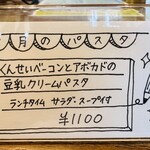 月のパスタ
くんせいベーコンとアボカドの
豆乳クリームパスタ
ランチタイム サラダ、スープ付
¥1100